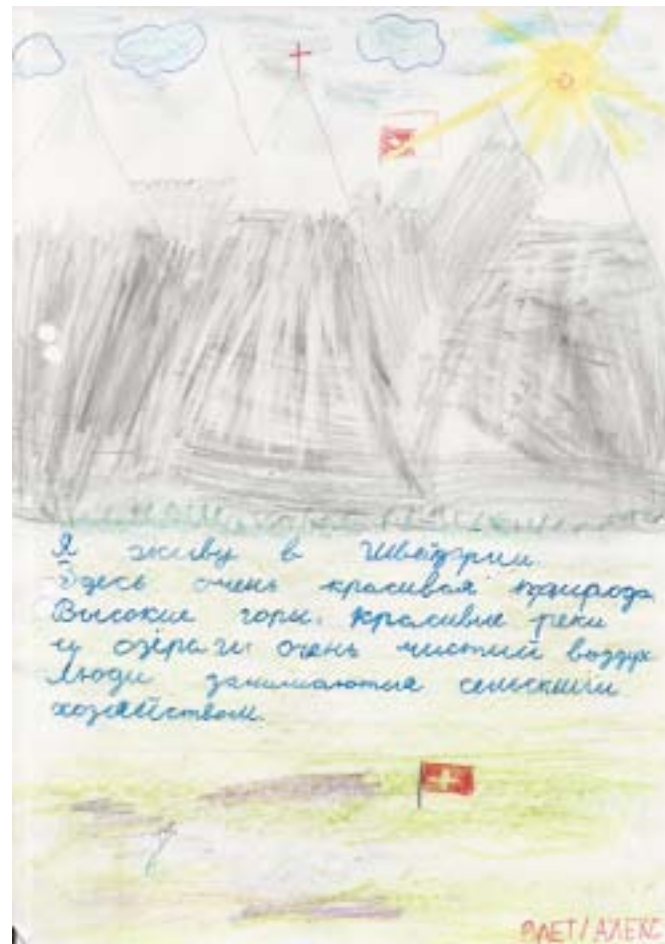 Я живу в Швейцрии.
Здесь очень красивая природа.
Высокие горы. Красивые реки
и озёра. и очень чистий воздух
Люди занимаются сельским
хозяйством.
/ АЛЕКС